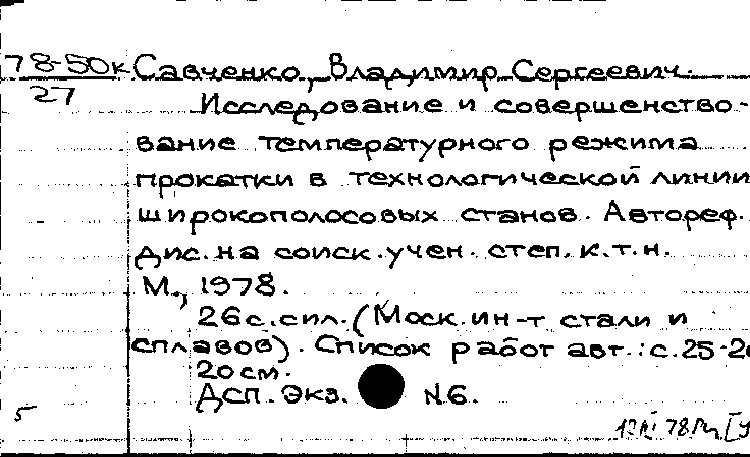 78-50к Савченко, Владимир Сергеевич.
27
Исследование и совершенство-
вание температурного режима
прокатки в технологической линии
широкополосовых станов. Автореф.
дис. на соиск. учен. степ. к.т.н.
М., 1978.
26с. с ил. (Моск. ин-т стали и
сплавов). Список работ авт.: с. 25-2
20 см.
Дсп. Экз. N6.
5